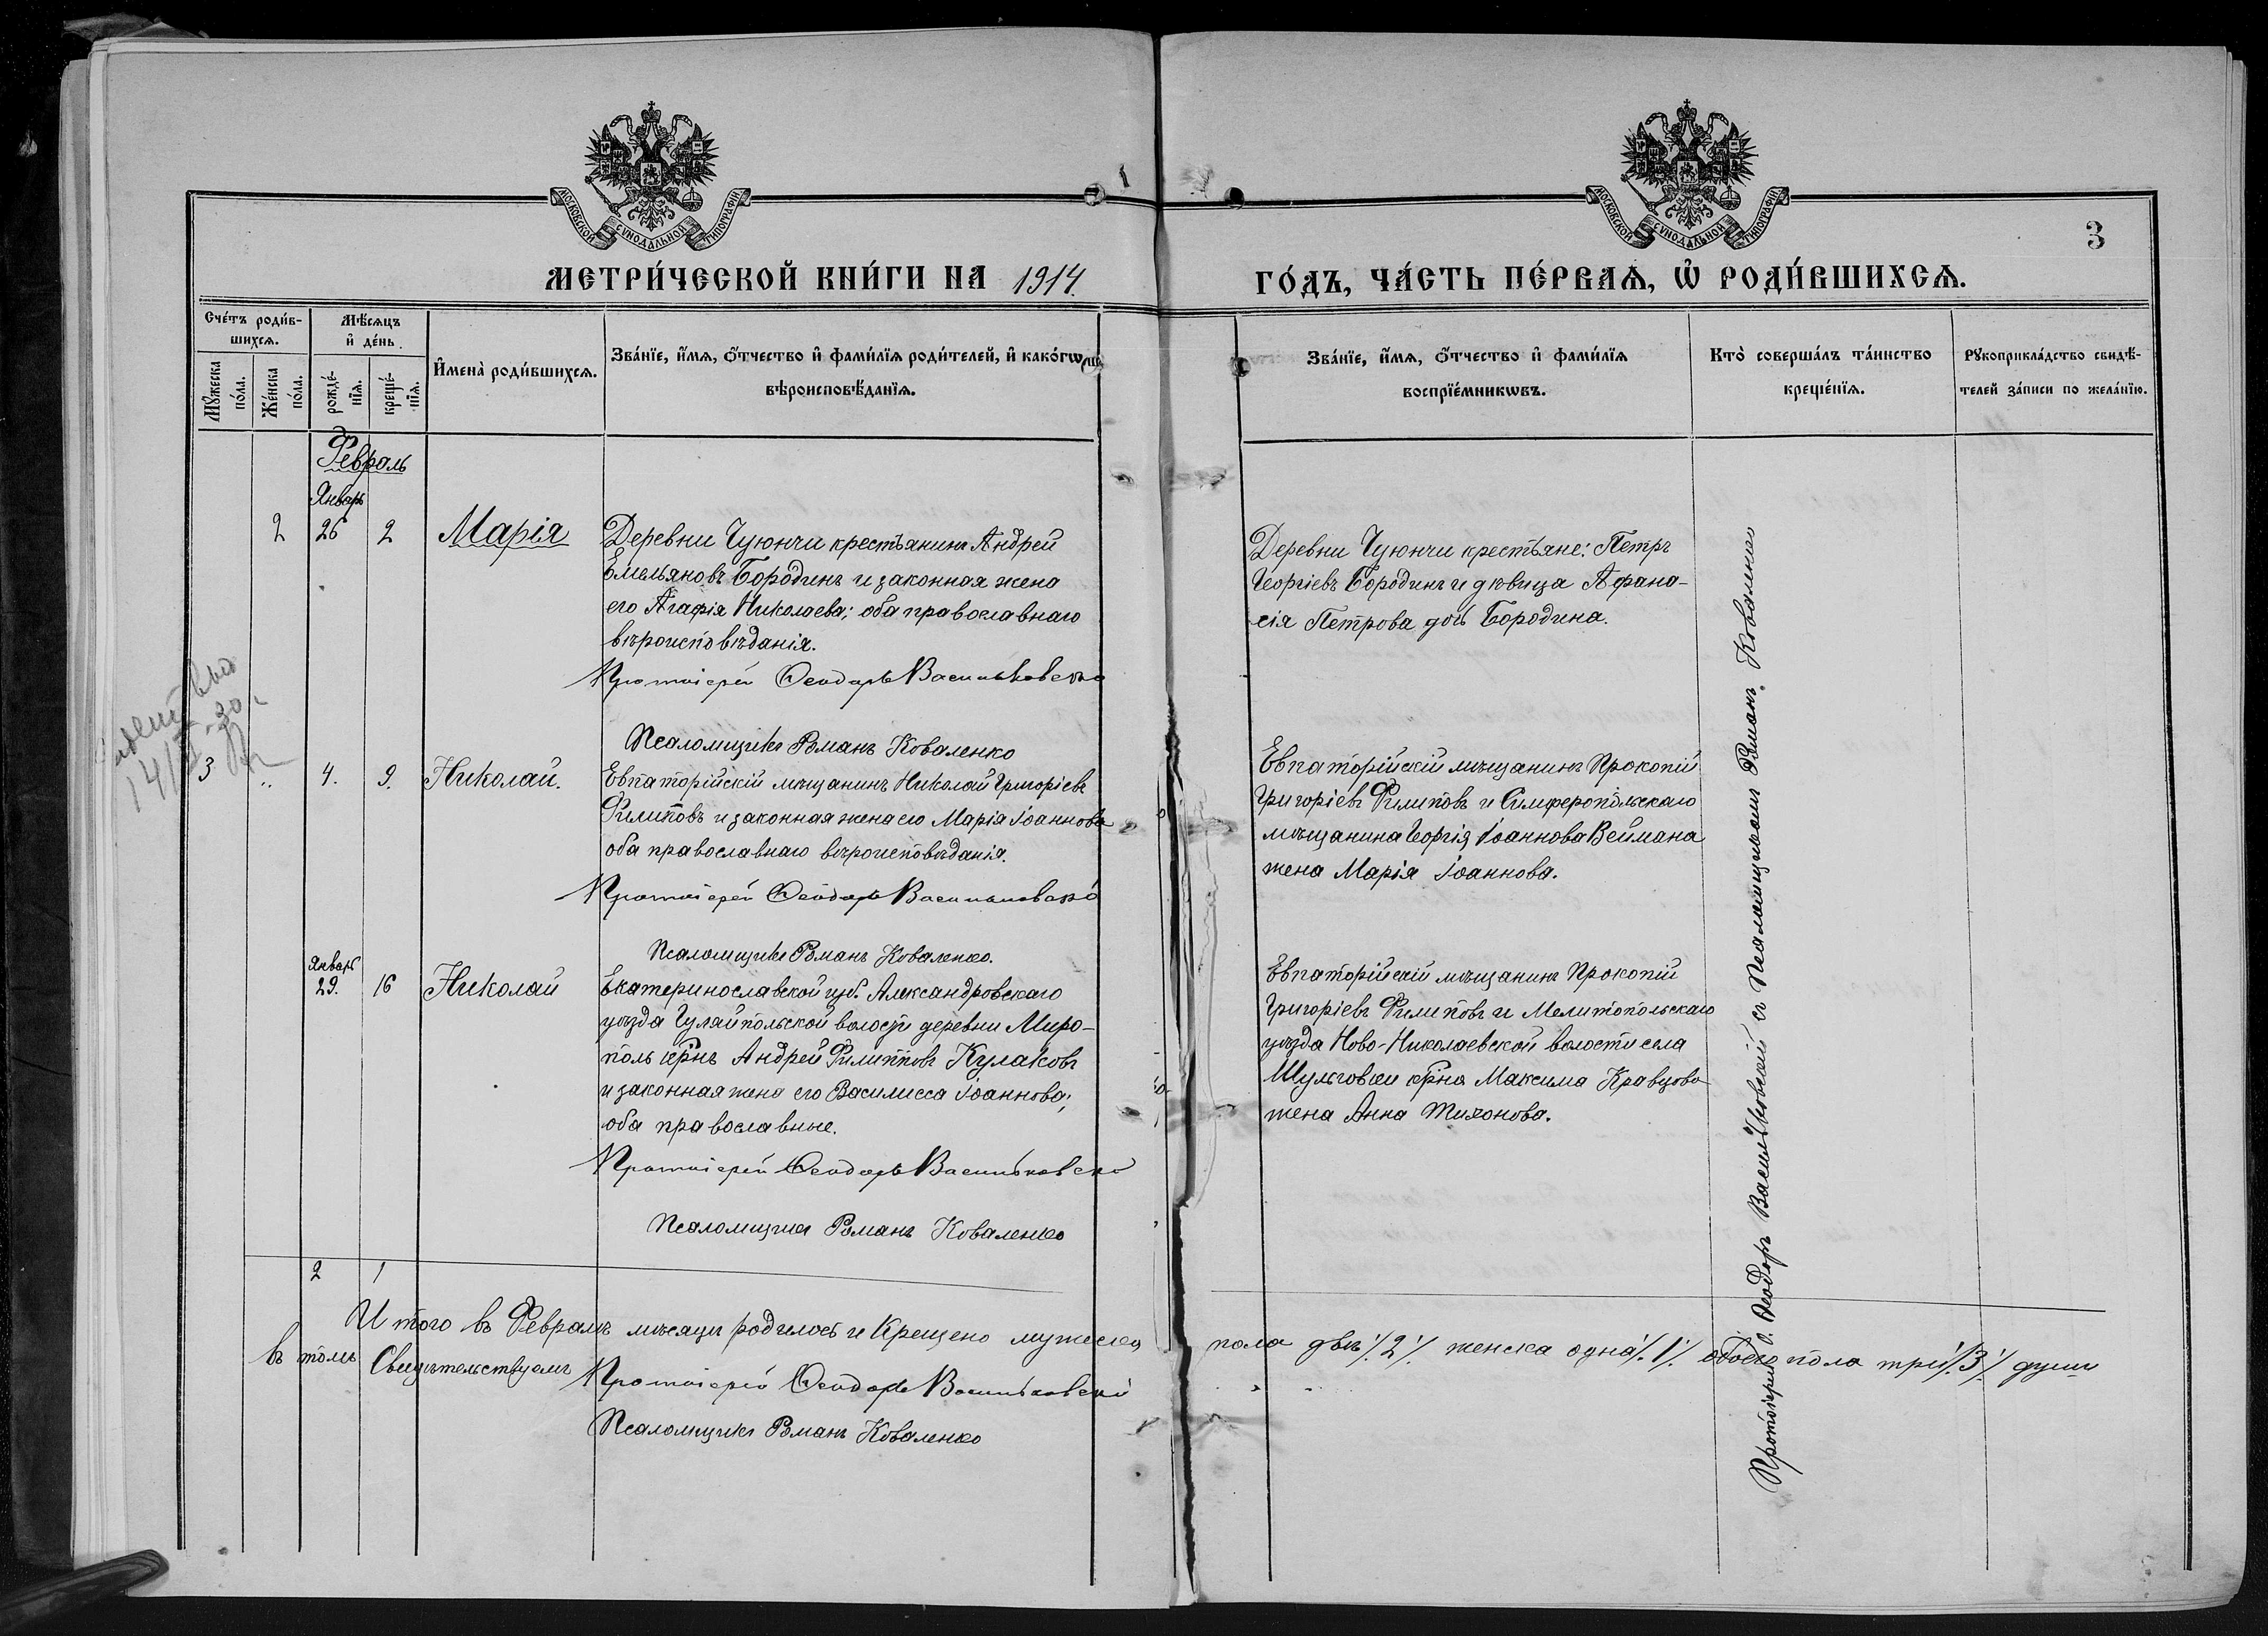 МОСКОВСКОЙ СѴНОДАЛЬНОЙ ТИПОГРАФІИ
МОСКОВСКОЙ СѴНОДАЛЬНОЙ ТИПОГРАФІИ
3
МЕТРИ́ЧЕСКОЙ КНИ́ГИ НА 1914.
ГО́ДЪ, ЧА́СТЬ ПЕ́РВАѦ, Ѡ҆ РОДИ́ВШИХСѦ.
Сче́тъ роди́в-
шихсѧ.
Мѣ́сѧцъ
и҆ де́нь.
Мꙋ́жеска
по́ла.
Же́нска
по́ла.
рожде́-
нїѧ.
креще́-
нїѧ.
И҆мена̀ роди́вшихсѧ.
Зва́нїе, и҆́мѧ, ѻ҆́тчество и҆ фами́лїѧ роди́телей, и҆ како́гѡ
вѣроисповѣ́данїѧ.
Зва́нїе, и҆́мѧ, ѻ҆́тчество и҆ фами́лїѧ
воспрїе́мникѡвъ.
Кто̀ соверша́лъ та́инство
креще́нїѧ.
Рꙋкоприкла́дство свидѣ́-
телей за́писи по жела́нїю.
Февраль
Январь
2 26 2 Марія
Деревни Чуюнчи крестьянинъ Андрей
Емельяновъ Бородинъ и законная жена
его Агафія Николаева; оба православнаго
вѣроисповѣданія.
Протоіерей Ѳеодоръ Васильковскій
Псаломщикъ Романъ Коваленко
Деревни Чуюнчи крестьяне: Петръ
Георгіевъ Бородинъ и дѣвица Афана-
сія Петрова дочь Бородина.
3 „ 4. 9. Николай.
Евпаторійскій мѣщанинъ Николай Григоріевъ
Филиповъ и законная жена его Марія Іоаннова
оба православнаго вѣроисповѣданія.
Протоіерей Ѳеодоръ Васильковскій
Псаломщикъ Романъ Коваленко.
Евпаторійскій мѣщанинъ Прокопій
Григоріевъ Филиповъ и Симферопольскаго
мѣщанина Георгія Іоаннова Веймана
жена Марія Іоаннова.
Январь
29. 16 Николай
Екатеринославской губ. Александровскаго
уѣзда Гуляйпольской волости деревни Миро-
поль крнъ Андрей Филипповъ Кулаковъ
и законная жена его Василисса Іоаннова;
оба православные.
Протоіерей Ѳеодоръ Васильковскій
Псаломщикъ Романъ Коваленко
Евпаторійскій мѣщанинъ Прокопій
Григоріевъ Филиповъ и Мелитопольскаго
уѣзда Ново-Николаевской волости села
Шульговки крна Максима Кравцова
жена Анна Тихонова.
Протоіерей о. Ѳеодоръ Васильковскій съ Псаломщикомъ Романъ Коваленко
2 1
Итого въ Февралѣ мѣсяцѣ родилось и крещено мужеска пола двѣ ⁒2⁒ женска одна ⁒1⁒ обоего пола три ⁒3⁒ души
въ томъ Свидѣтельствуемъ
Протоіерей Ѳеодоръ Васильковскій
Псаломщикъ Романъ Коваленко